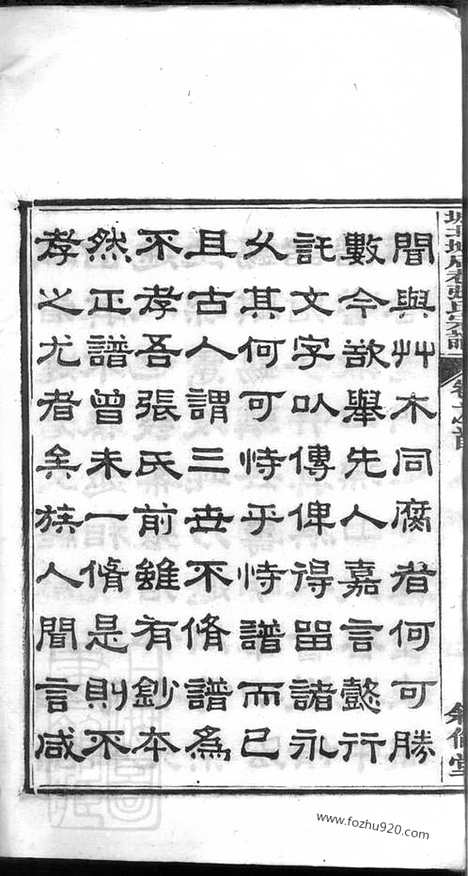 間與艸木同腐者何可勝
數今欲舉先人嘉言懿行
託文字以傳俾得留諸永
久其何可恃乎恃譜而已
且古人謂三世不脩譜為
不孝吾張氏前雖有鈔本
然正譜曾未一脩是則不
孝之尤者矣族人聞言咸
www.fozhu920.com